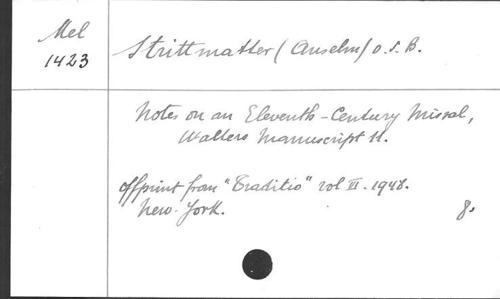 Mel
1423
Strittmatter (Anselm) O.S.B.
Notes on an Eleventh-Century Missal,
Walters Manuscript 11.
Offprint from "Traditio" vol VI. 1948.
New-York.
8.